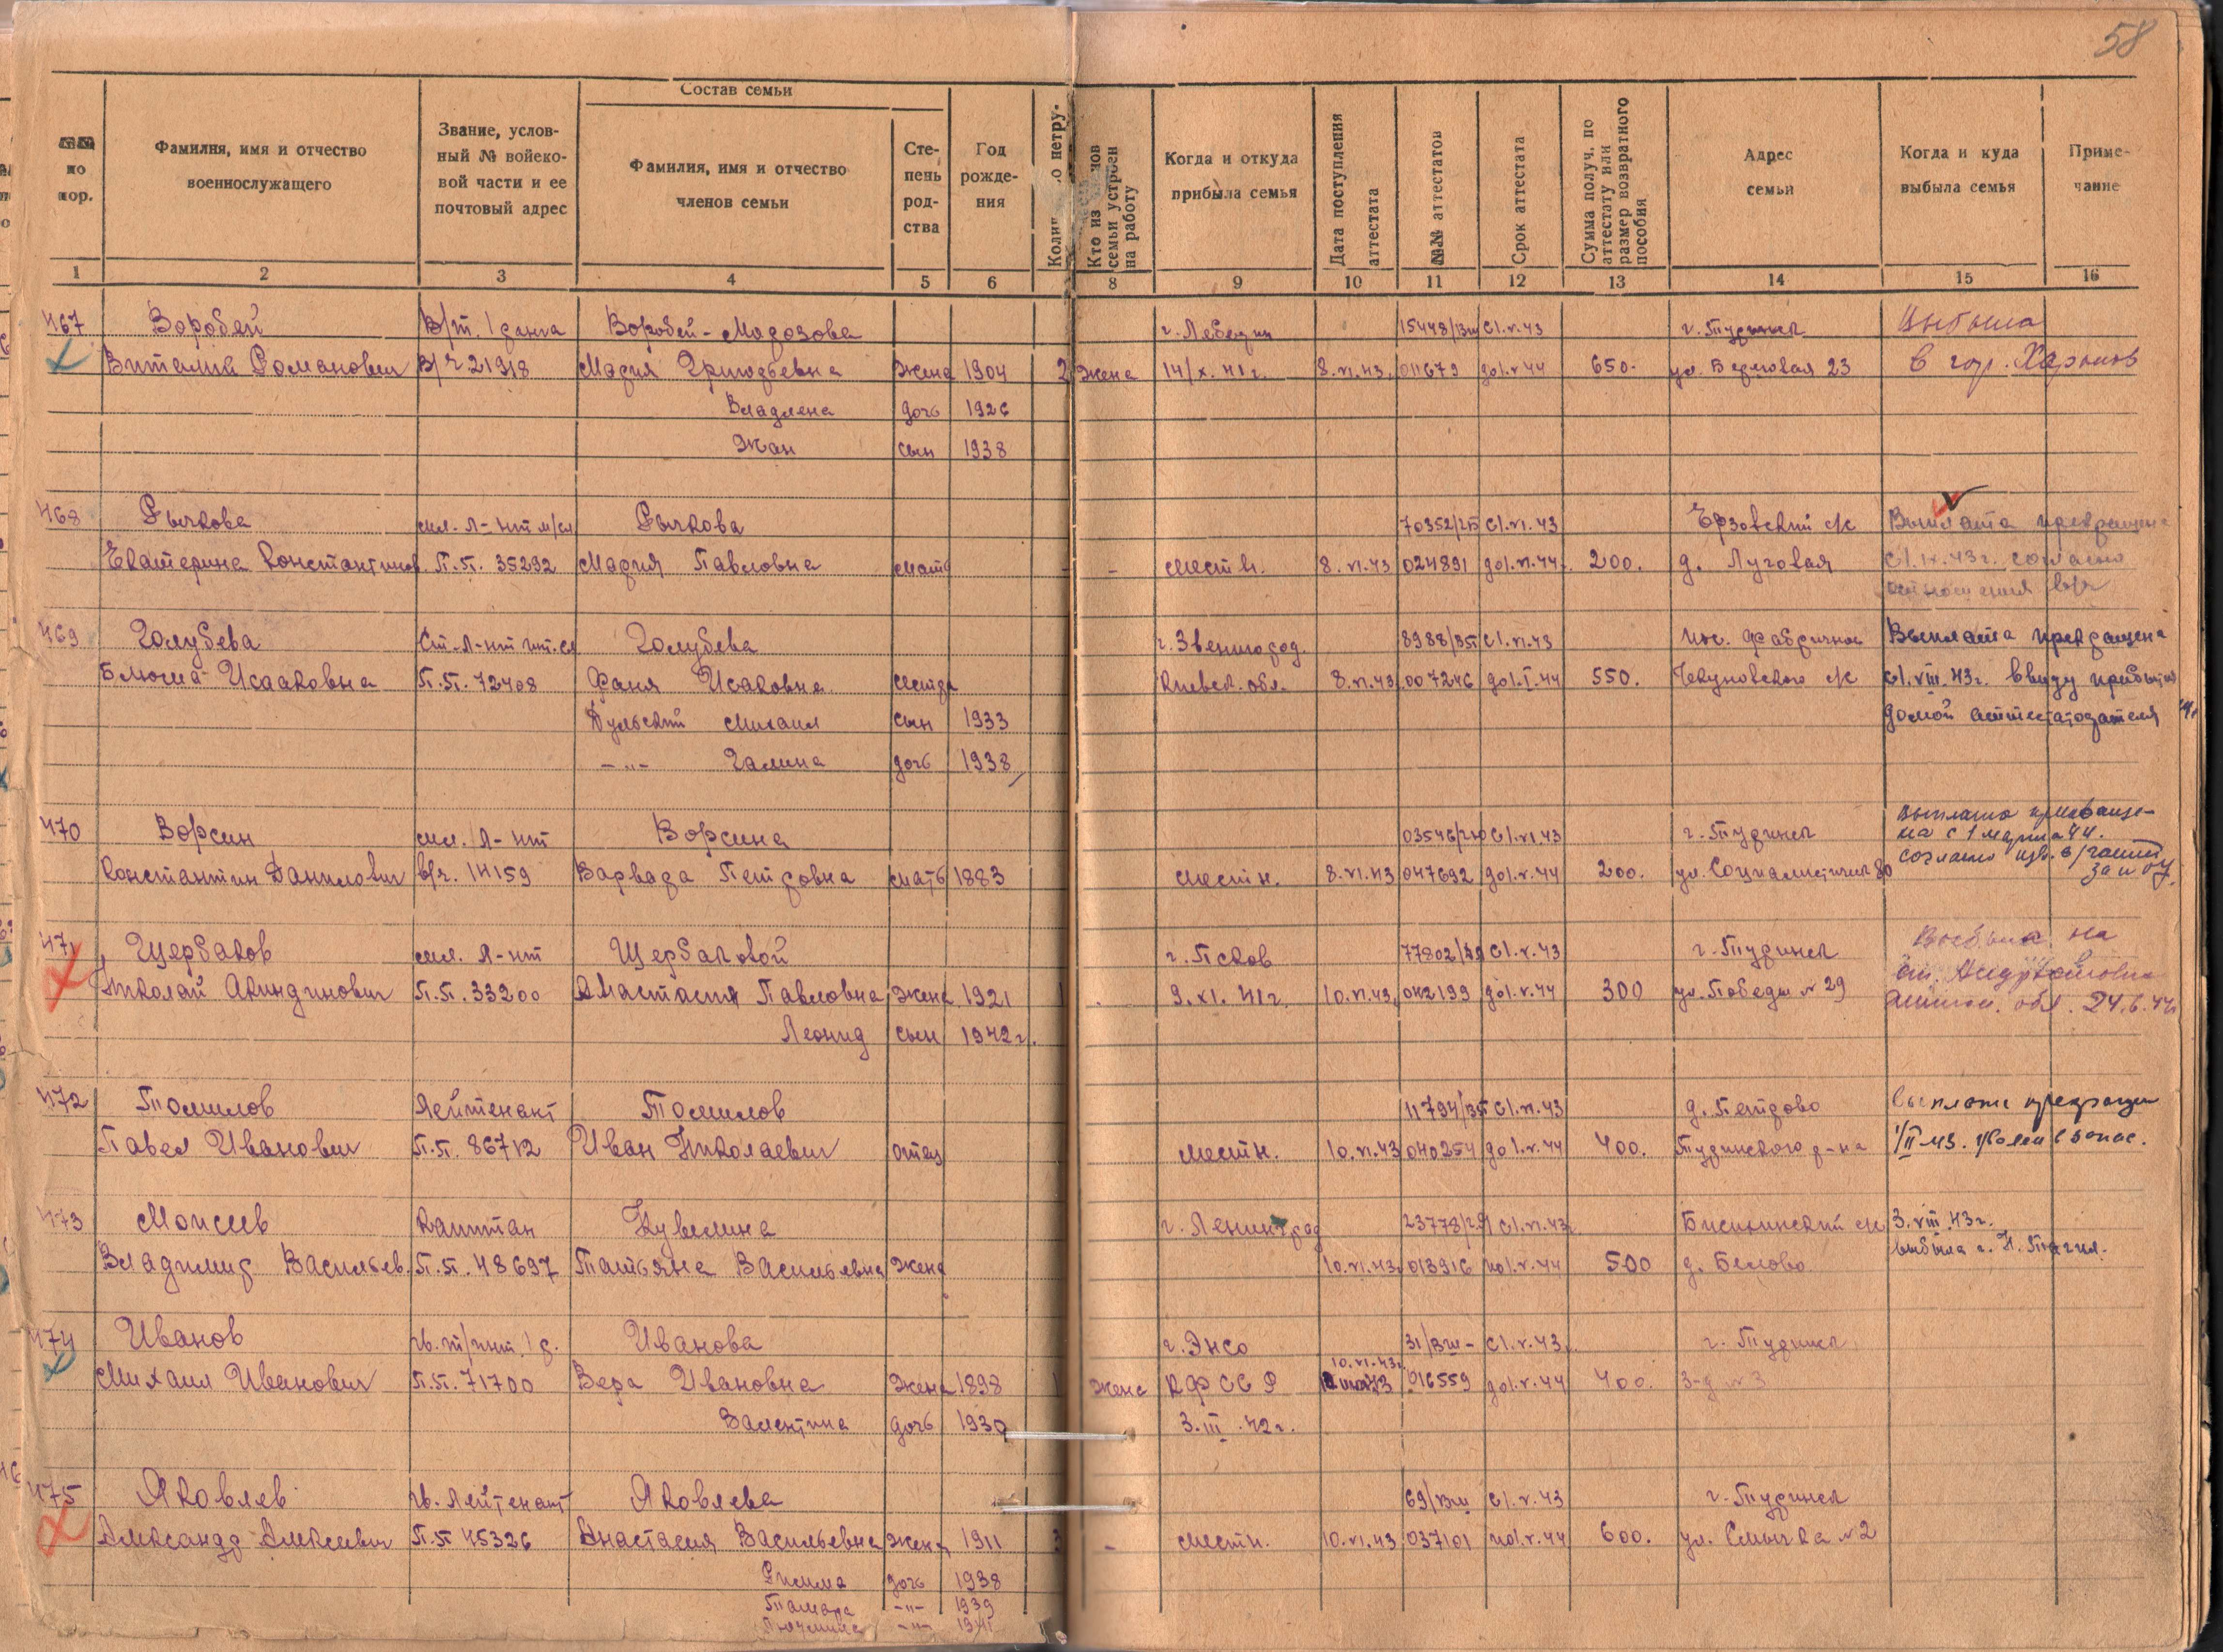 58
Состав семьи
№№ по пор.
Фамилия, имя и отчество военнослужащего
Звание, условный № войсковой части и ее почтовый адрес
Фамилия, имя и отчество членов семьи
Степень родства
Год рождения
Кто из членов семьи устроен на работу
Когда и откуда прибыла семья
Дата поступления аттестата
№№ аттестатов
Срок аттестата
Сумма получ. по аттестату или размер возвратного пособия
Адрес семьи
Когда и куда выбыла семья
Примечание
1 2 3 4 5 6 8 9 10 11 12 13 14 15 16
467 Воробей Воробей-Мадозова г. Лебедин с1.V.43 г. Туринск Выбыла
Виталий Романович В/ч 21918 Мария Григорьевна жена 1904 2 жена 14/X.41г. 8.VI.43 011679 до1.V.44 650. 23 в гор. Харьков
Владлена дочь 1926
Жан сын 1938
468 Рычкова Рычкова 70352/25 с1.VI.43 Ерзовский с/с Выплата прекращена
Екатерина Константинов. П.П. 35292 Мария Павловна мать - - местн. 8.VI.43 024891 до1.VI.44 200. д. Луговая с1.IX.43г. согласно
отношения в/ч
469 Голубева Голубева г. Звенигород. 8988/35 с1.VI.43 пос. Фабричное Выплата прекращена
Блюма Исааковна П.П. 72408 Фаня Исаковна сестра Киевск. обл. 8.VI.43 007246 до1.I.44 550. Чекуновского с/с с1.VIII.43г. ввиду прибытия
Дульский Михаил сын 1933 домой аттестатодателя
-"- Галина дочь 1938
470 Ворсин мл. л-нт Ворсина с1.VI.43 г. Туринск Выплата прекраще-
на с 1 марта 44.
Константин Данилович в/ч. 14159 Варвара Петровна мать 1883 местн. 8.VI.43 047692 до1.V.44 200. ул. Социалистическ 80 согласно изв. в/части
471 Щербаков мл. л-нт Щербаковой г. Псков с1.V.43 г. Туринск Выбыла на
Николай Акиндинович П.П. 33200 Анастасия Павловна жена 1921 1 9.XI.41г. 10.VI.43 042199 до1.V.44 300 ул. Победы № 29 обл. 24.6.44
Леонид сын 1942г.
472 Томилов Лейтенант Томилов 11794/35 с1.VI.43 д. Петрово Выплата прекращен
Павел Иванович П.П. 86712 Иван Николаевич отец местн. 10.VI.43 040254 до1.V.44 400. Туринского р-на 1/II 43. уволен в запас.
473 Моисеев Капитан Кувелина г. Ленинград с1.VI.43 3.VIII.43г.
Владимир Васильев. П.П. 48697 Татьяна Васильевна жена 10.VI.43 013916 по1.V.44 500 д. Белово выбыла г. Н. Тагил.
474 Иванов Иванова г. Энсо с1.V.43 г. Туринск
Михаил Иванович П.П. 71700 Вера Ивановна жена 1898 1 жена КФССР 10.VI.43г. 016559 до1.V.44 400. 3-д № 3
Валентина дочь 1930 3.III.42г.
475 Яковлев гв. лейтенант Яковлева с1.V.43 г. Туринск
Александр Алексеевич П.П 45326 Анастасия Васильевна жена 1911 3 - местн. 10.VI.43 037101 по1.V.44 600. ул. Смычка № 2
Римма дочь 1938
Тамара -"- 1939
Людмила -"- 1941